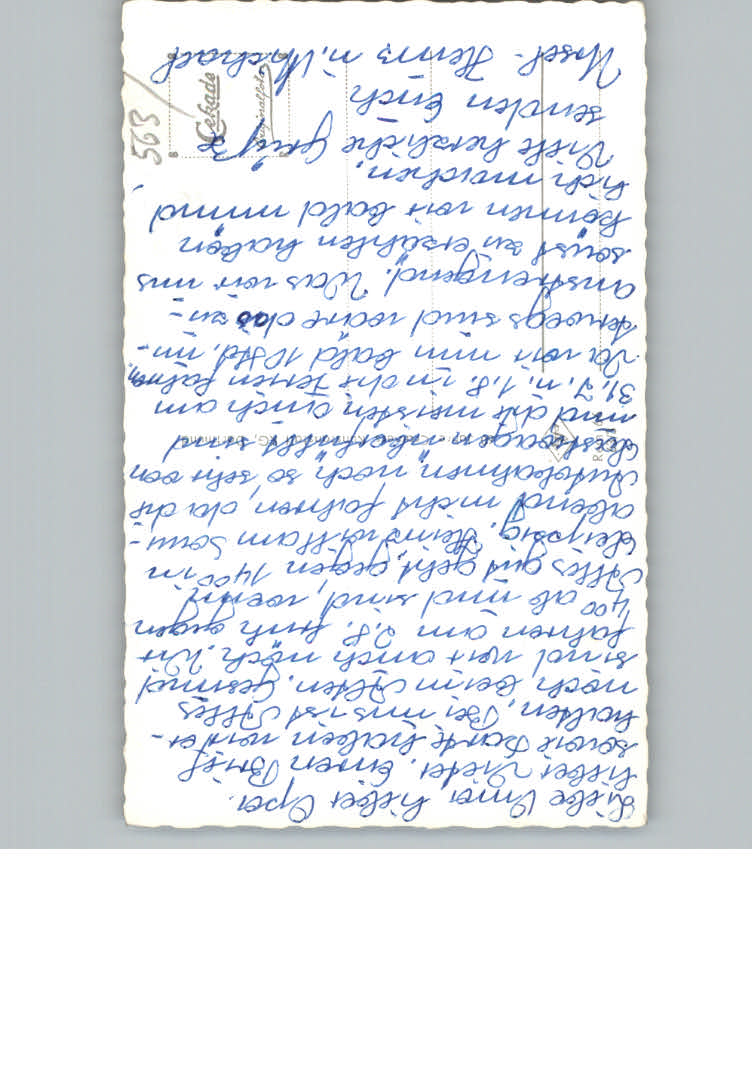 Liebe Oma, lieber Opa.
lieber Dieter. Euren Brief
sowie Karte haben wir er-
halten. Bei uns ist Alles
noch beim Alten. Gesund
sind wir auch noch. Wir
fahren am 2.8. früh gegen
4,00 ab und sind, wenn
Alles gut geht, gegen 14,00 in
Leipzig. Heinz will am Sonn-
abend nicht fahren, da die
Autobahnen noch so sehr von
Lastwagen überfüllt sind
und die meisten auch am
31.7. u. 1.8. in die Ferien fahren.
Da wir nun bald 10 Std. un-
terwegs sind wäre das zu
anstrengend. Was wir uns
sonst zu erzählen haben
können wir bald münd
lich machen.
Viele herzliche Grüße
senden Euch
Ursel - Heinz u. Michael
563
Cekade
Originalfoto
KG, Dortmund